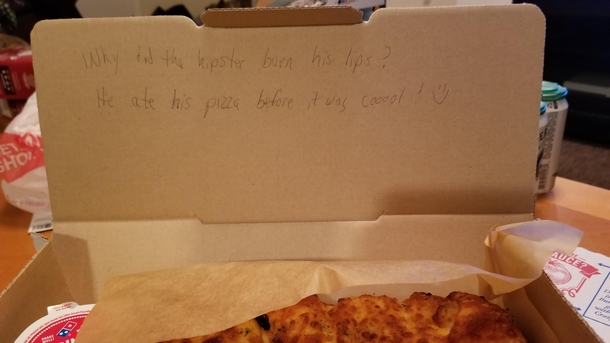 Why did the hipster burn his lips?
He ate his pizza before it was cooool! :)